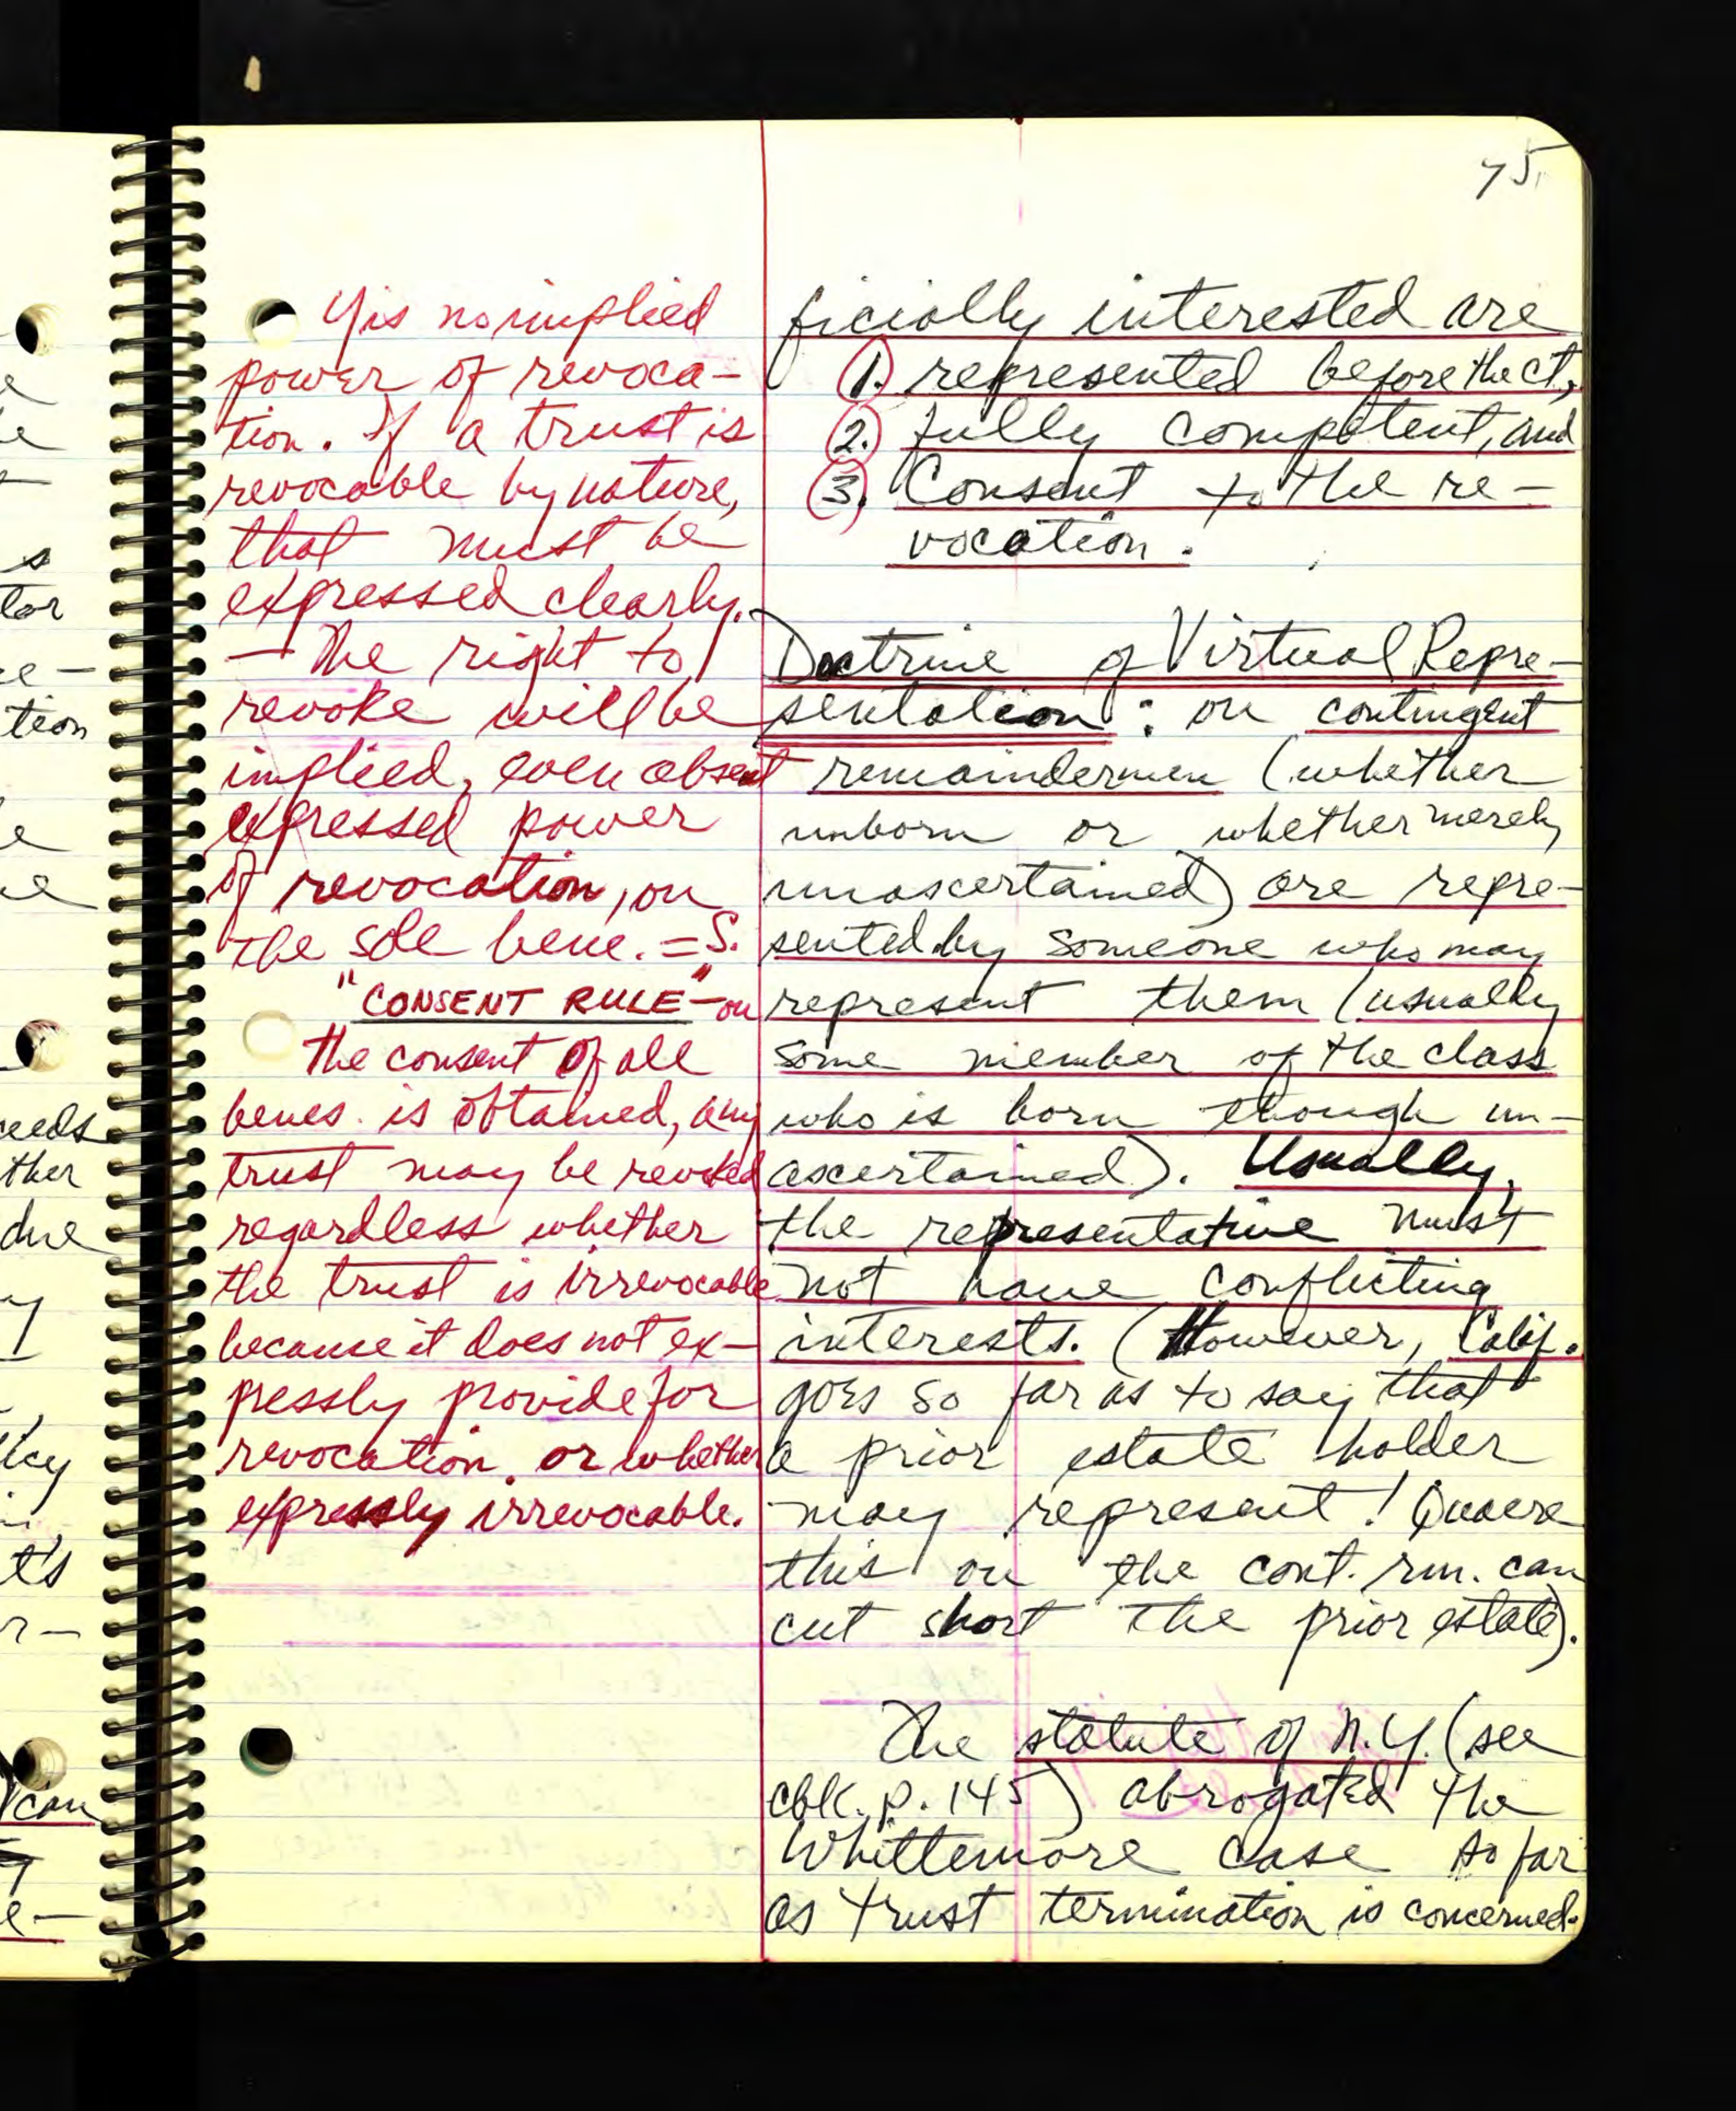 75
Yis no implied
power of revoca-
tion. If a trust is
revocable by nature,
that must be
expressed clearly.
— The right to
revoke will be
implied, even absent
expressed power
of revocation, ou
the sole bene. = S.
"CONSENT RULE" - ou
the consent of all
benes. is obtained, any
trust may be revoked
regardless whether
the trust is irrevocable
because it does not ex-
pressly provide for
revocation, or whether
expressly irrevocable.
ficially interested are
1. represented before the ct,
2. fully competent, and
3. Consent to the re-
vocation.
Doctrine of Virtual Repre-
sentation: ou contingent
remaindermen (whether
unborn or whether merely
unascertained) are repre-
sented by someone who may
represent them (usually
some member of the class
who is born though un-
ascertained). Usually,
the representative must
not have conflicting
interests. (However, Calif.
goes so far as to say that
a prior estate holder
may represent! Quaere
this ou the cont. rm. can
cut short the prior estate).
The statute of N.Y. (see
cbk. p. 145) abrogated the
Whittemore case so far
as trust termination is concerned.
s
tor
tion
eeds
ther
due
icy
t's
r-
can